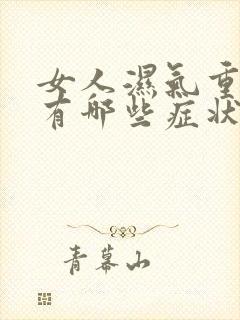 女人濕氣重
有哪些症狀
青幕山